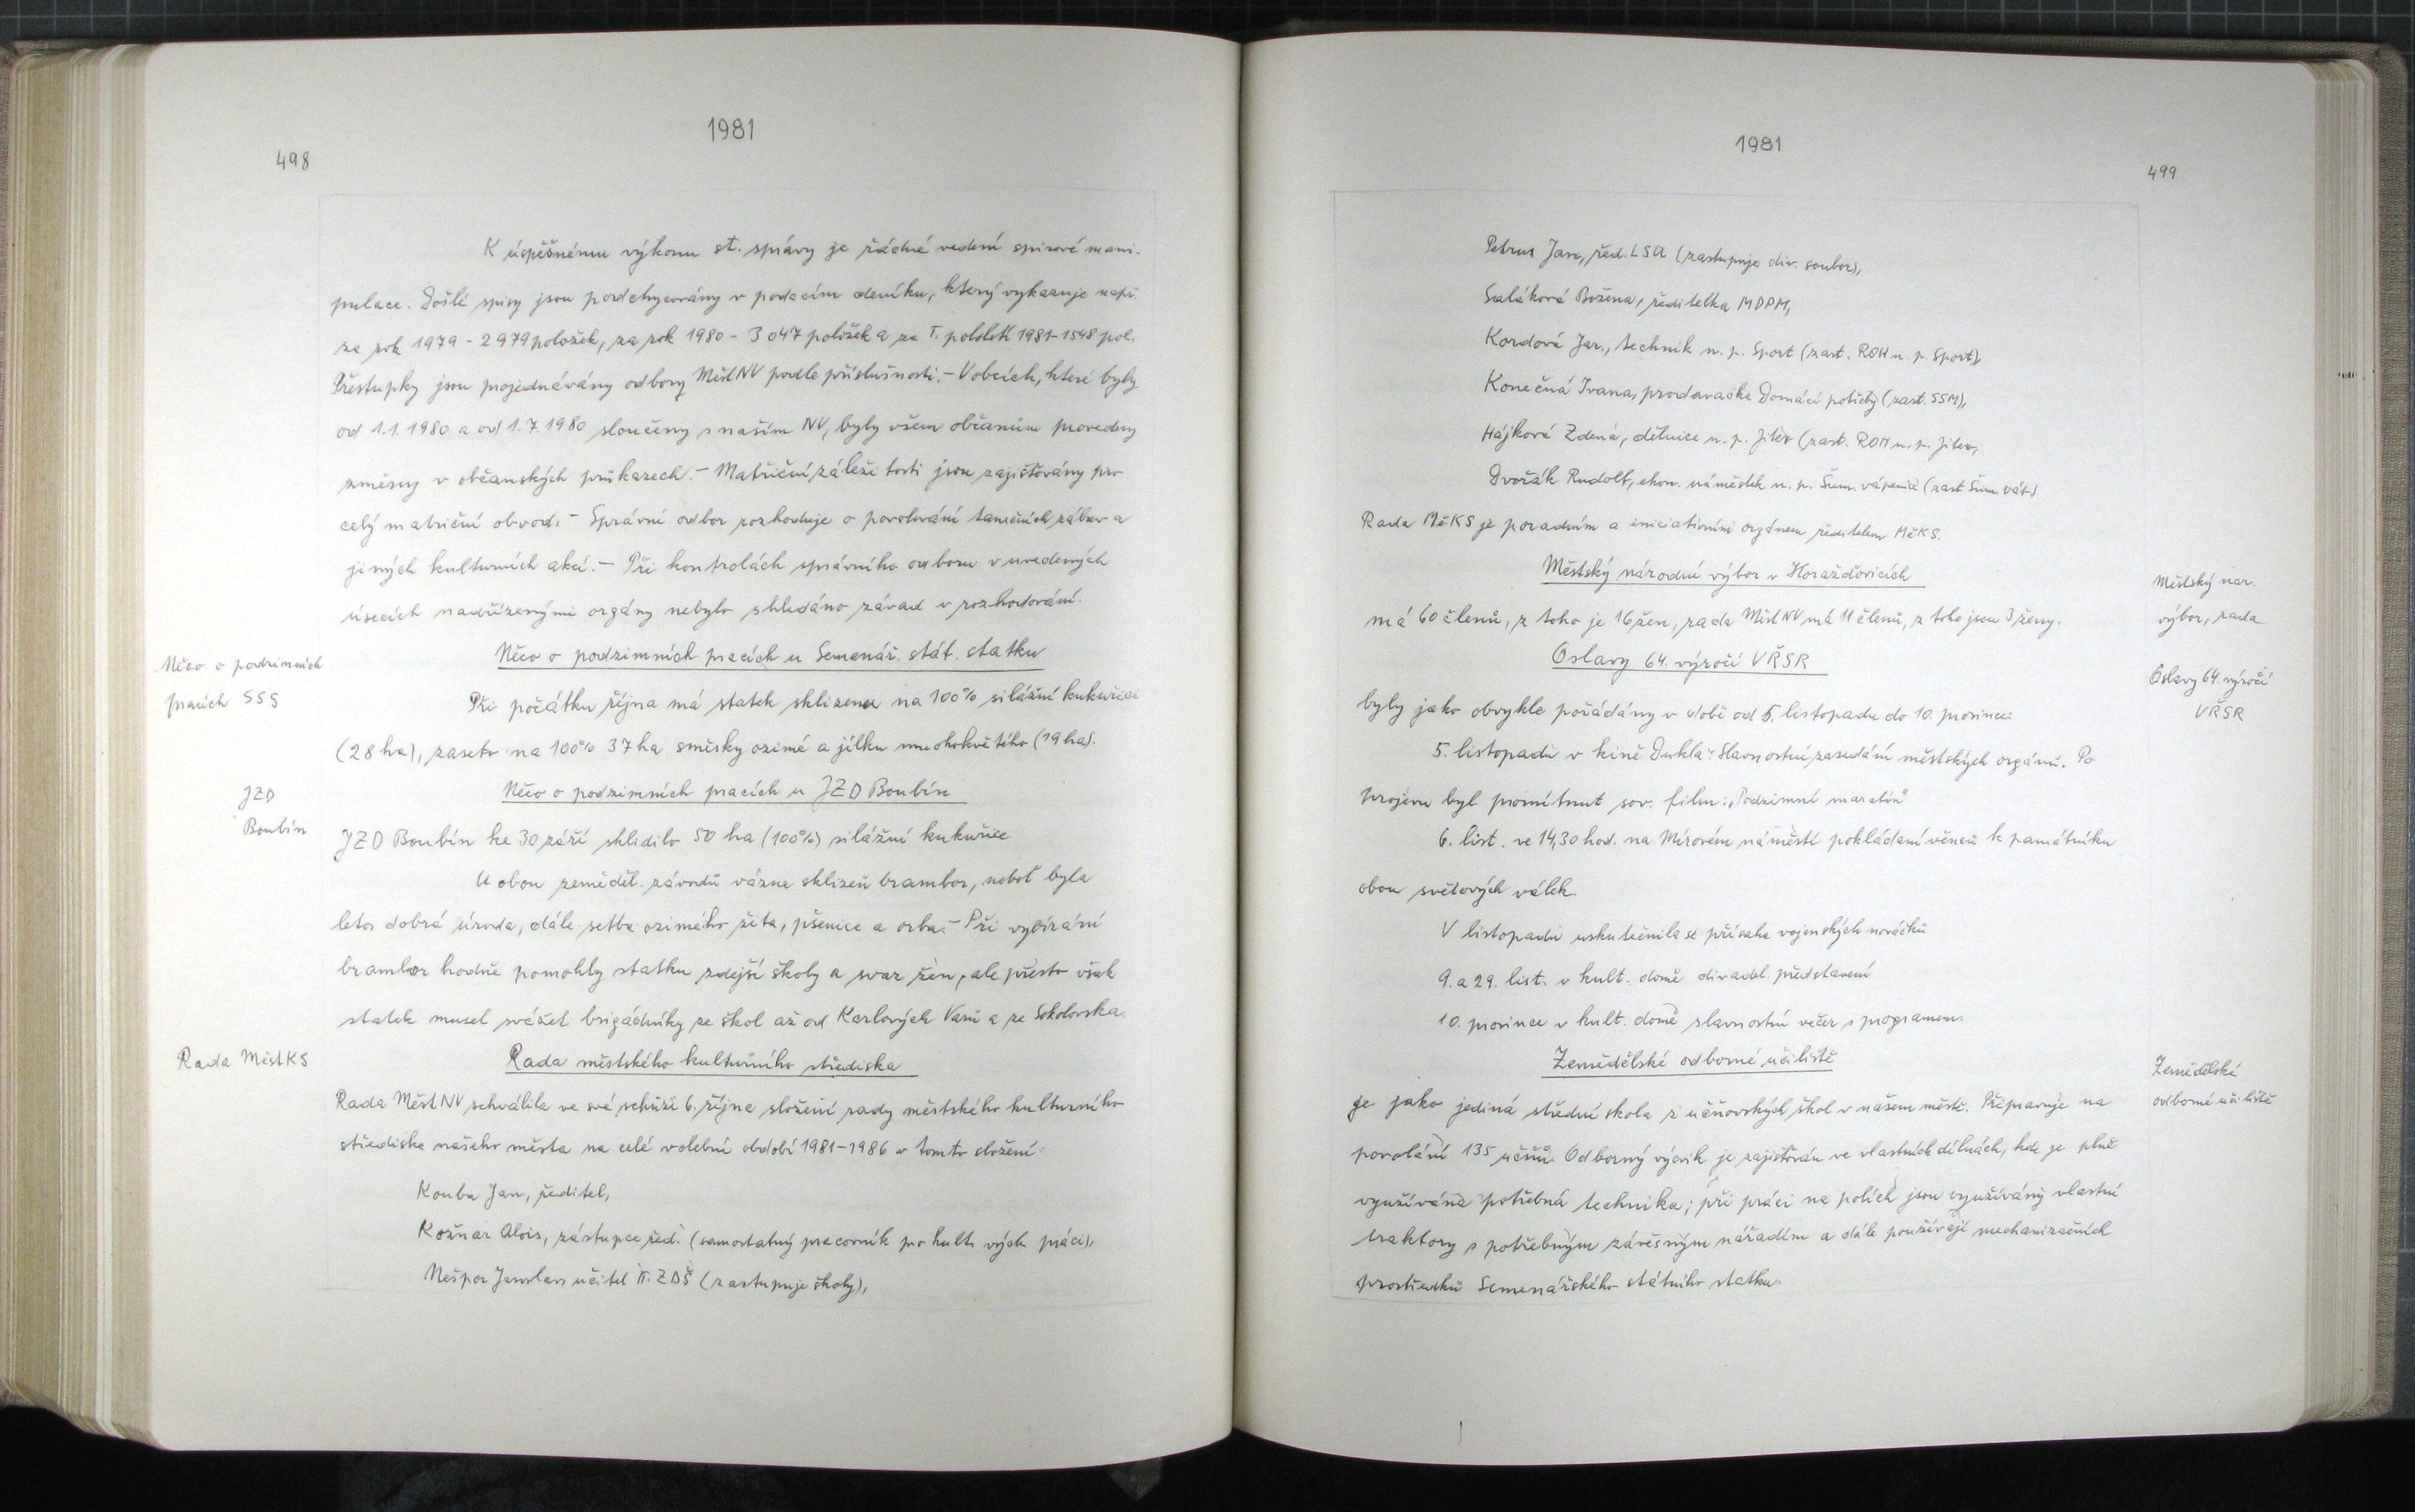 1981
498
K úspěšnému výkonu st. správy je řádné vedení spisové mani-
pulace. Došlé spisy jsou podchycovány v podacím deníku, který vykazuje např.
za rok 1979 - 2979 položek, za rok 1980 - 3047 položek a za I. pololetí 1981-1548 pol.
Přestupky jsou projednávány odbory MěstNV podle příslušnosti. - V obcích, které byly
od 1.1.1980 a od 1.7.1980 sloučeny s naším NV, byly všem občanům provedeny
změny v občanských průkazech. - Matriční záležitosti jsou zajišťovány pro
celý matriční obvod. - Správní odbor rozhoduje o povolování tanečních zábav a
jiných kulturních akcí. - Při kontrolách správního odboru v uvedených
úsecích nadřízenými orgány nebylo shledáno závad v rozhodování.
Něco o podzimních
pracích SSS
Něco o podzimních pracích u Semenář. stát. statku
Při počátku října má statek sklizena na 100% silážní kukuřici
(28 ha), zaseto na 100% 37 ha směsky ozimé a jílku mnohokvětého (19 ha).
JZD
Boubín
Něco o podzimních pracích u JZD Boubín
JZD Boubín ke 30 září sklidilo 50 ha (100%) silážní kukuřice
U obou zeměděl. závodů vázne sklizeň brambor, neboť byla
letos dobrá úroda, dále setba ozimého žita, pšenice a orba. - Při vybírání
brambor hodně pomohly statku zdejší školy a svaz žen, ale přesto však
statek musel svážet brigádníky ze škol až od Karlových Varů a ze Sokolovska.
Rada MěstKS
Rada městského kulturního střediska
Rada MěstNV schválila ve své schůzi 6. října složení rady městského kulturního
střediska našeho města na celé volební období 1981-1986 v tomto složení:
Kouba Jan, ředitel,
Kožnar Alois, zástupce řed. (samostatný pracovník pro kult. vých. práci),
Nešpor Jaroslav učitel II. ZDŠ (zastupuje školy),
1981
499
Petrus Jan, řed. LŠU (zastupuje div. soubor),
Saláková Božena, ředitelka MDPM,
Kordová Jar., technik n. p. Sport (zast. ROH n. p. Sport),
Konečná Ivana, prodavačka Domácí potřeby (zast. SSM),
Hájková Zdena, dělnice n. p. Jitex (zast. ROH n. p. Jitex,
Dvořák Rudolf, ekon. náměstek n. p. Šum. vápenice (zast Šum. váp.)
Rada MěKS je poradním a iniciativním orgánem ředitelem MěKS.
Městský národní výbor v Horažďovicích
Městský nár.
výbor, rada
má 60 členů, z toho je 16 žen, rada MěstNV má 11 členů, z toho jsou 3 ženy.
Oslavy 64. výročí VŘSR
Oslavy 64. výročí
VŘSR
byly jako obvykle pořádány v době od 5. listopadu do 10. prosince:
5. listopadu v kině Dukla: Slavnostní zasedání městských orgánů. Po
projevu byl promítnut sov. film: „Podzimní maratón"
6. list. ve 14,30 hod. na Mírovém náměstí pokládaní věnců k památníku
obou světových válek.
V listopadu uskutečnila se přísaha vojenských nováčků
9. a 29. list. v kult. domě divadel. představení
10. prosince v kult. domě slavnostní večer s programem.
Zemědělské odborné učiliště
Zemědělské
odborné učiliště
je jako jediná střední škola z učňovských škol v našem městě. Připravuje na
povolání 135 učňů. Odborný výcvik je zajišťován ve vlastních dílnách, kde je plně
využívána potřebná technika; při práci na polích jsou využívány vlastní
traktory s potřebným závěsným nářadím a dále používají mechanizačních
prostředků Semenářského státního statku.